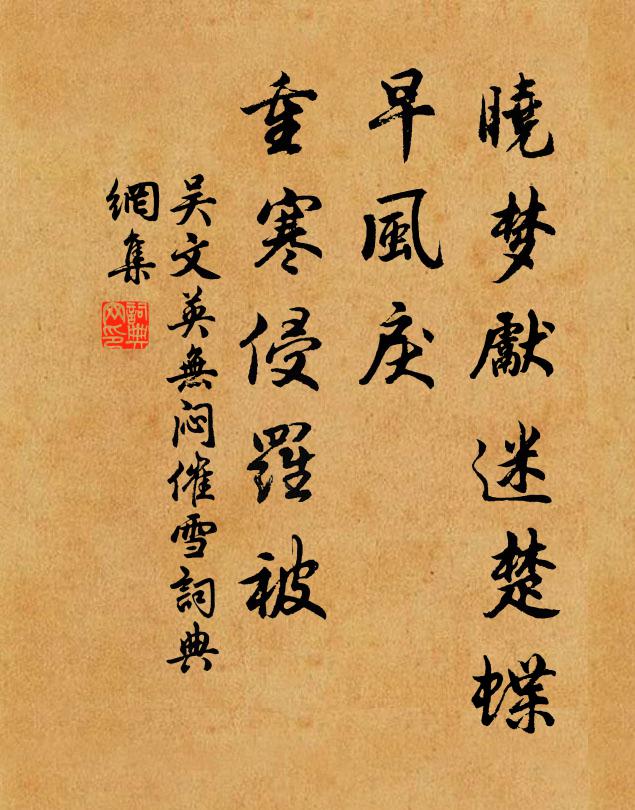 曉梦獻迷楚蝶
早風戾
重寒侵羅被
吴文英無闷催雪詞典
網集
詞典
网印